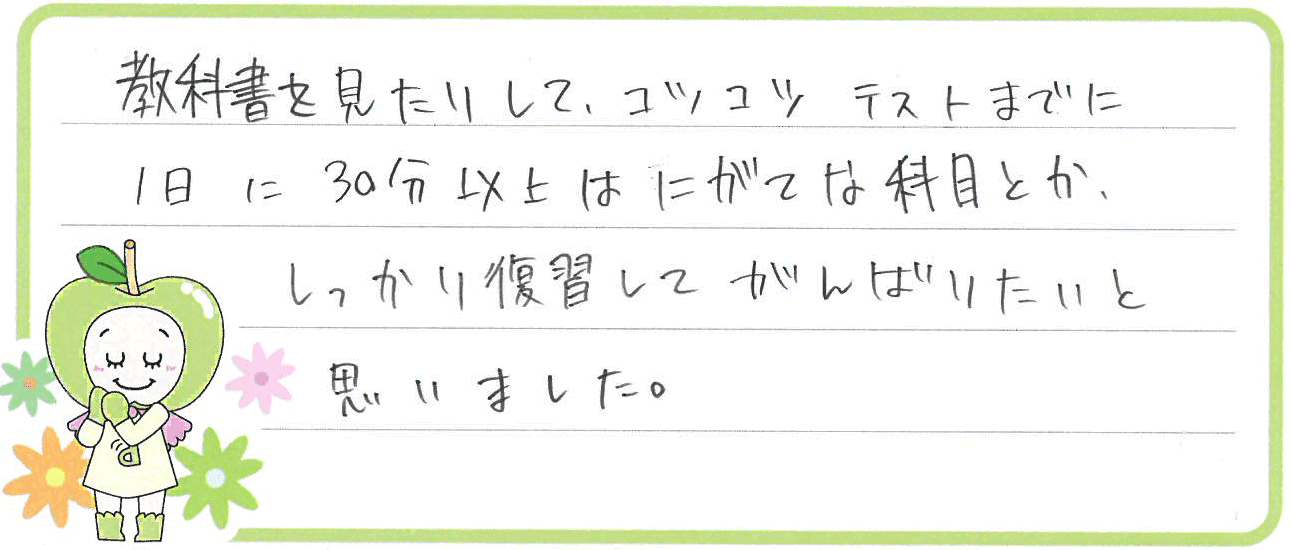 教科書を見たりして、コツコツ テストまでに
1日に 30分以上は にがてな科目とか、
しっかり復習して がんばりたいと
思いました。